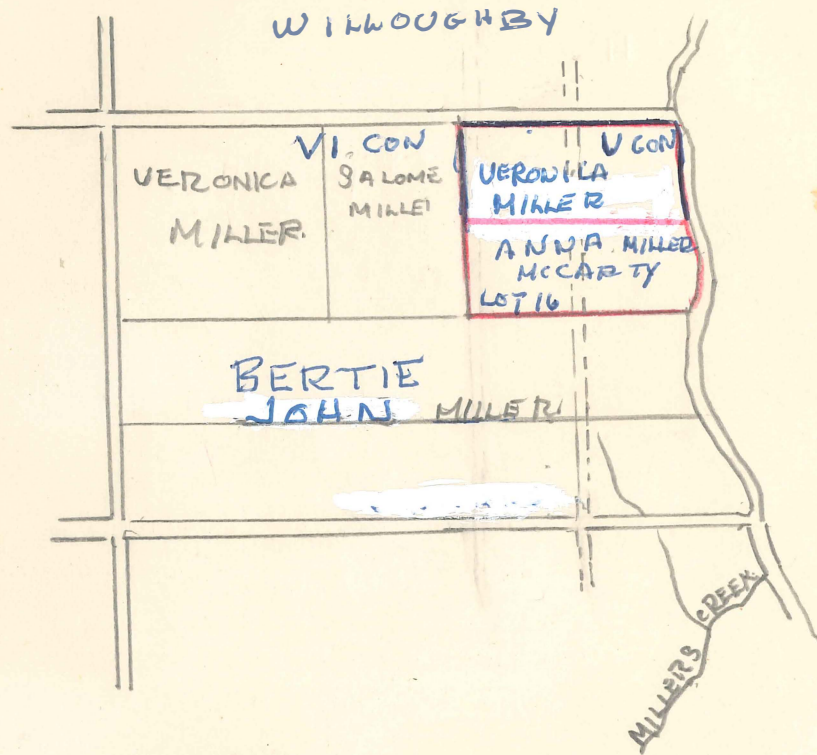 WILLOUGHBY
VI. CON
V CON
VERONICA
MILLER.
SALOME
MILLE
VERONICA
MILLER
ANNA MILLER
MCCARTY
LOT 16
BERTIE
JOHN MILLER
MILLERS CREEK